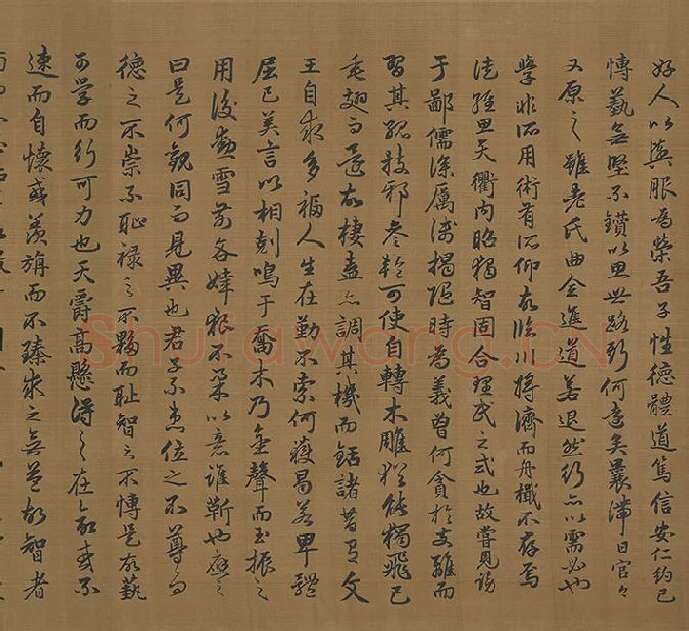 好人以輿服為榮吾子性德體道篤信安仁約己
博藝無堅不鑽以思世路斯何遠矣曩滯日官今
又原之雖老氏曲全進道若退然行亦以需必也
學非所用術有所仰故臨川將濟而舟檝不存焉
徒經思天衢內昭獨智固合理民之式也故嘗見謗
于鄙儒深厲淺揭隨時為義曾何貪於支離而
習其孤技邪參輪可使自轉木雕猶能獨飛已
垂翅而還故棲盍亦調其機而銛諸昔有文
王自求多福人生在勤不索何獲曷若卑體
屈己美言以相剋鳴于喬木乃金聲而玉振之
用後勳雪前吝婞佷不柔以意誰靳也應之
曰是何觀同而見異也君子不患位之不尊而
德之不崇不恥祿之不夥而恥智之不博是故藝
可學而行可力也天爵高懸得之在命或不
速而自懷或羨旃而不臻求之無益故智者
Shufawang.CN